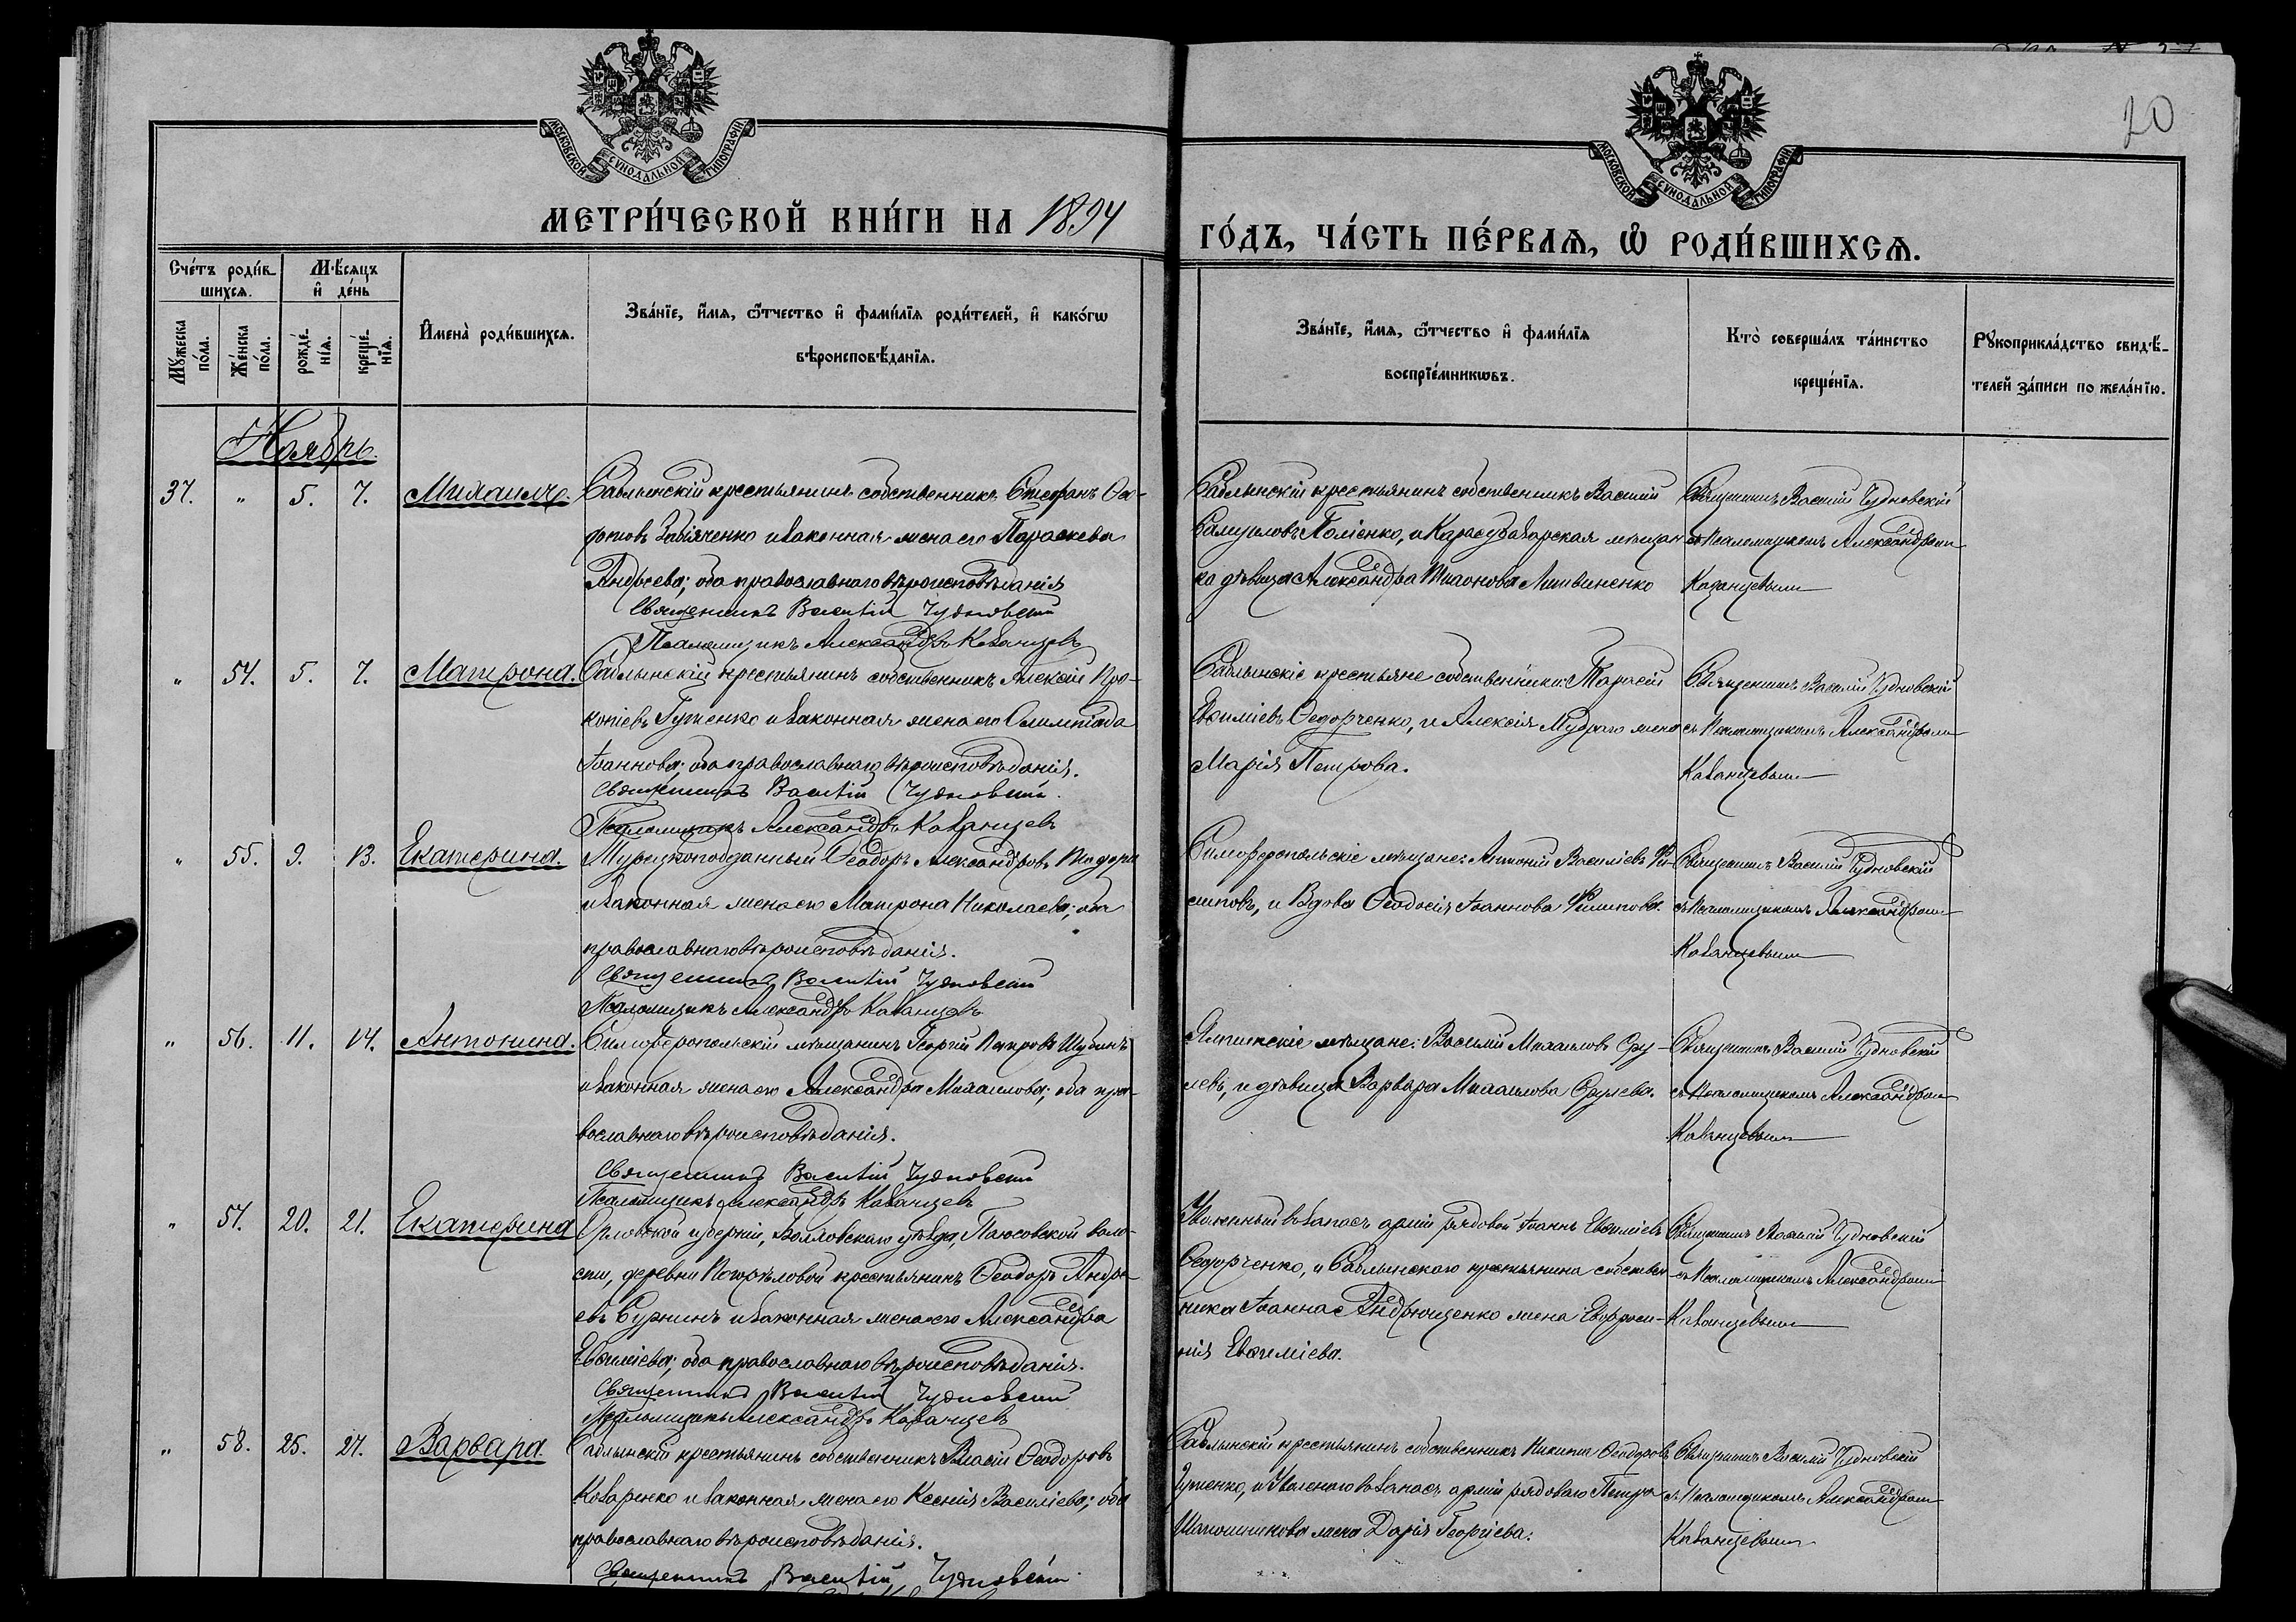 20
МОСКОВСКОЙ СѴНОДАЛЬНОЙ ТИПОГРАФІИ
МОСКОВСКОЙ СѴНОДАЛЬНОЙ ТИПОГРАФІИ
МЕТРИ́ЧЕСКОЙ КНИ́ГИ НА 1894
ГО́ДЪ, ЧА́СТЬ ПЕ́РВАѦ, Ѡ҆ РОДИ́ВШИХСѦ.
Сче́тъ роди́в-
шихсѧ.
Мѣ́сяцъ
и҆ де́нь
Мꙋ́жеска по́ла.
Же́нска по́ла.
рожде́-
нїѧ.
креще́-
нїѧ.
И҆мена̀ роди́вшихсѧ.
Зва́нїе, и҆́мѧ, ѻ҆́тчество и҆ фами́лїѧ роди́телей, и҆ како́гѡ
вѣроисповѣ́данїѧ.
Зва́нїе, и҆́мѧ, ѻ҆́тчество и҆ фами́лїѧ
воспрїе́мникѡвъ.
Кто̀ соверша́лъ та́инство
креще́нїѧ.
Рꙋкоприкла́дство свидѣ́-
телей за́писи по жела́нїю.
Ноябрь.
37. " 5. 7. Михаилъ.
Саблынскій крестьянинъ собственникъ Стефанъ
законная жена его Параскева
Андреева; оба православнаго вѣроисповѣданія
Священникъ Василій Чудновскій
Псаломщикъ Александръ Казанцевъ
Саблынскій крестьянинъ собственникъ Василій
и Карасубазарская мѣщан
ка дѣвица Александра Литвиненко
Священникъ Василій Чудновскій
съ Псаломщикомъ Александромъ
Казанцевымъ
" 54. 5. 7. Матрона.
Саблынскій крестьянинъ собственникъ Алексій Про-
копіевъ Гутенко и законная жена его Олимпіада
Іоаннова; оба православнаго вѣроисповѣданія.
Священникъ Василій Чудновскій.
Псаломщикъ Александръ Казанцевъ
Саблынскіе крестьяне собственники: Тарасій
Евѳиміевъ Ѳедорченко, и Алексія Мудраго жена
Марія Петрова.
Священникъ Василій Чудновскій
съ Псаломщикомъ Александромъ
Казанцевымъ
" 55. 9. 13. Екатерина.
Турецкоподданный Ѳеодоръ Александровъ
и законная жена его Матрона Николаева; оба
православнаго вѣроисповѣданія.
Священникъ Василій Чудновскій
Псаломщикъ Александръ Казанцевъ
Симферопольскіе мѣщане: Антоній Василіевъ Фи-
липовъ, и Вдова Ѳеодосія Іоаннова Филипова.
Священникъ Василій Чудновскій
съ Псаломщикомъ Александромъ
Казанцевымъ
" 56. 11. 14. Антонина.
Симферопольскій мѣщанинъ Георгій Петровъ Шубинъ
и законная жена его Александра Михаилова; оба пра-
вославнаго вѣроисповѣданія.
Священникъ Василій Чудновскій
Псаломщикъ Александръ Казанцевъ
Ялтинскіе мѣщане: Василій Михаиловъ
и дѣвица Варвара Михаилова
Священникъ Василій Чудновскій
съ Псаломщикомъ Александромъ
Казанцевымъ
" 57. 20. 21. Екатерина
Орловской губерніи, Болховскаго уѣзда, воло-
сти, деревни крестьянинъ Ѳеодоръ Андре-
евъ Сурнинъ и законная жена его Александра
Евѳиміева; оба православнаго вѣроисповѣданія.
Священникъ Василій Чудновскій
Псаломщикъ Александръ Казанцевъ
Уволенный въ запасъ арміи рядовой Іоаннъ Евѳиміевъ
Ѳедорченко, и Саблынскаго крестьянина собствен-
ника Іоанна Андрющенко жена Евфроси-
нія Евѳиміева.
Священникъ Василій Чудновскій
съ Псаломщикомъ Александромъ
Казанцевымъ
" 58. 25. 27. Варвара.
Саблынскій крестьянинъ собственникъ Власій Ѳеодоровъ
Козаренко и законная жена его Ксенія Василіева; оба
православнаго вѣроисповѣданія.
Священникъ Василій Чудновскій.
Саблынскій крестьянинъ собственникъ Никита Ѳеодоровъ
Гутенко, и Уволеннаго въ запасъ арміи рядоваго Петра
Шапошникова жена Дарія Георгіева.
Священникъ Василій Чудновскій
съ Псаломщикомъ Александромъ
Казанцевымъ